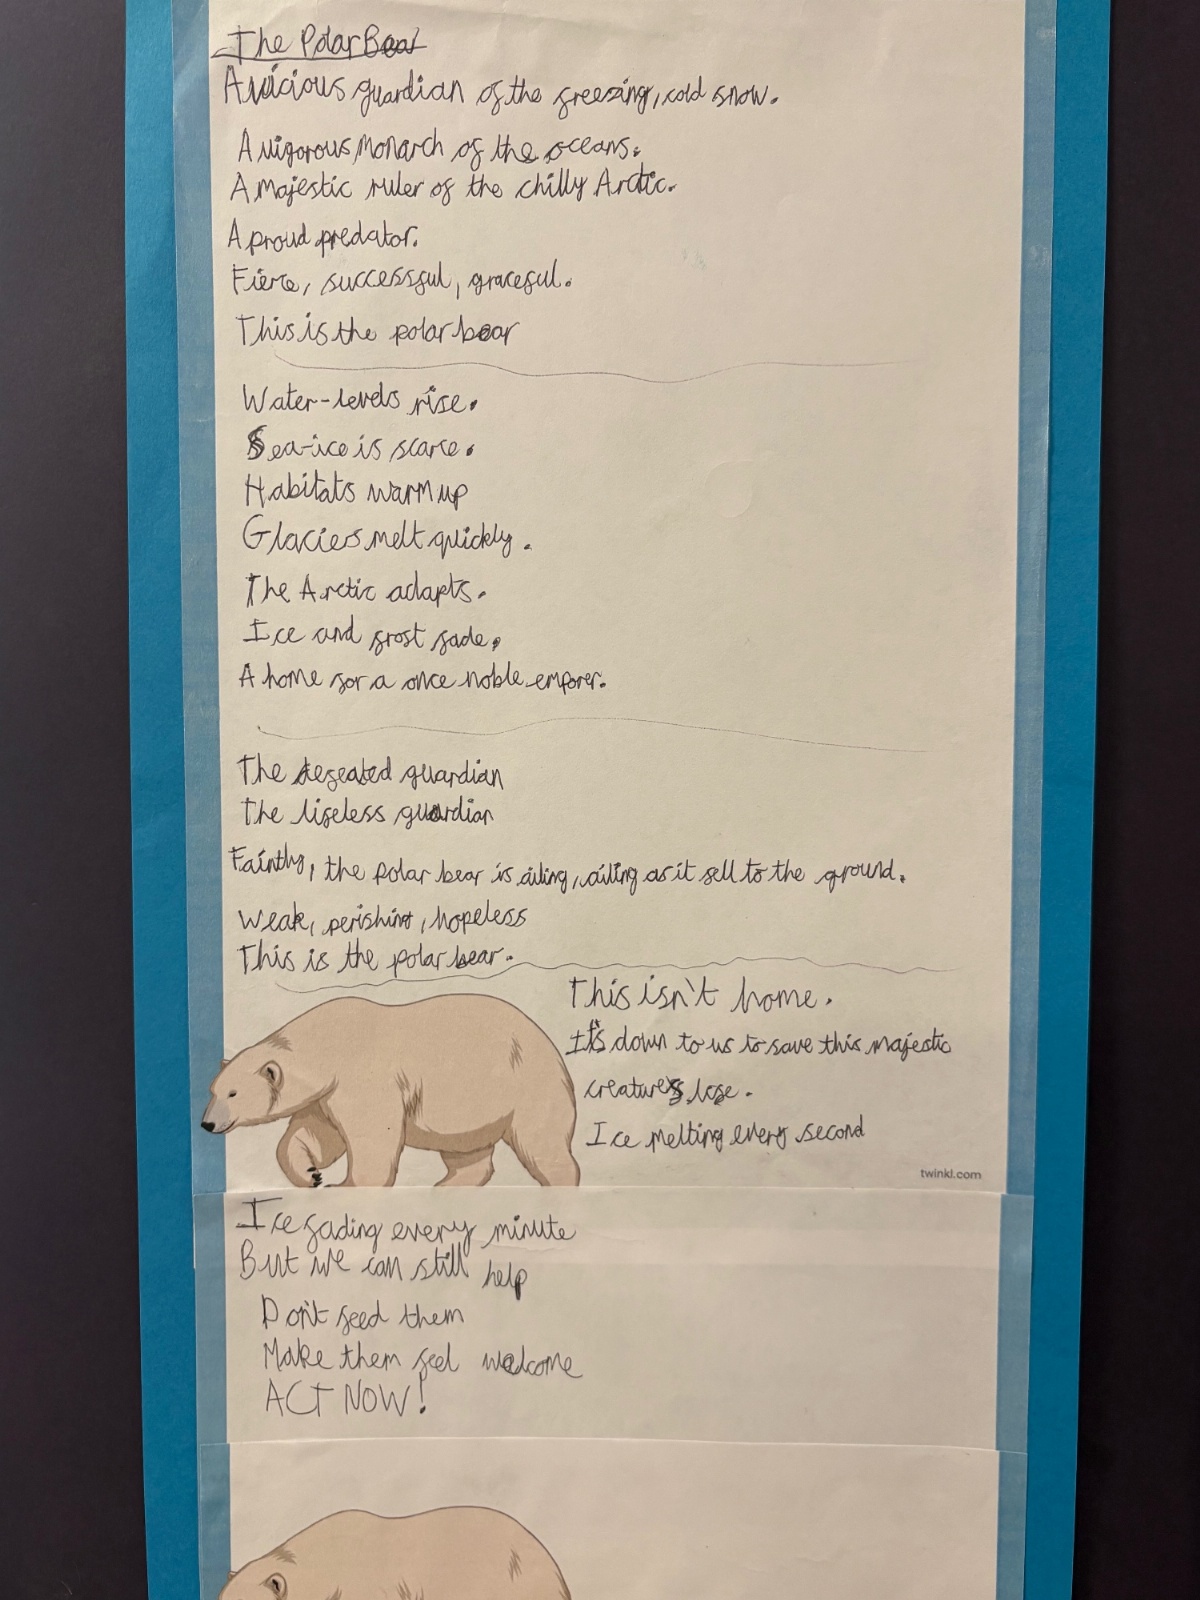 The Polar Bear
A vicious guardian of the freezing, cold snow.
A vigorous monarch of the oceans.
A majestic ruler of the chilly Arctic.
A proud predator.
Fierce, successful, graceful.
This is the polar bear
Water-levels rise.
Sea-ice is scarce.
Habitats warm up
Glaciers melt quickly.
The Arctic adapts.
Ice and frost fade.
A home for a once noble emporer.
The defeated guardian
The lifeless guardian
Faintly, the polar bear is ailing, ailing as it fell to the ground.
Weak, perishing, hopeless
This is the polar bear.
This isn't home.
It's down to us to save this majestic
creature's life.
Ice melting every second
twinkl.com
Ice fading every minute
But we can still help
Don't feed them
Make them feel welcome
ACT NOW!